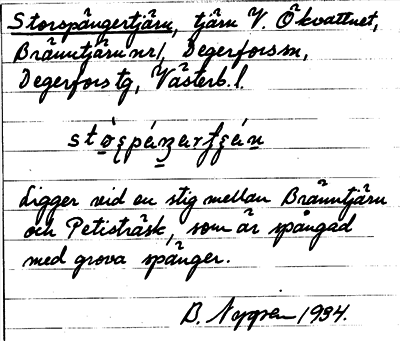 Storspångertjärn, tjärn V. Ökvattnet,
Bränntjärn nr 1, Degerfors sn,
Degerfors tg, Västerb. l.
Ligger vid en stig mellan Bränntjärn
och Petisträsk, som är spångad
med grova spänger.
B. Nygren 1934.